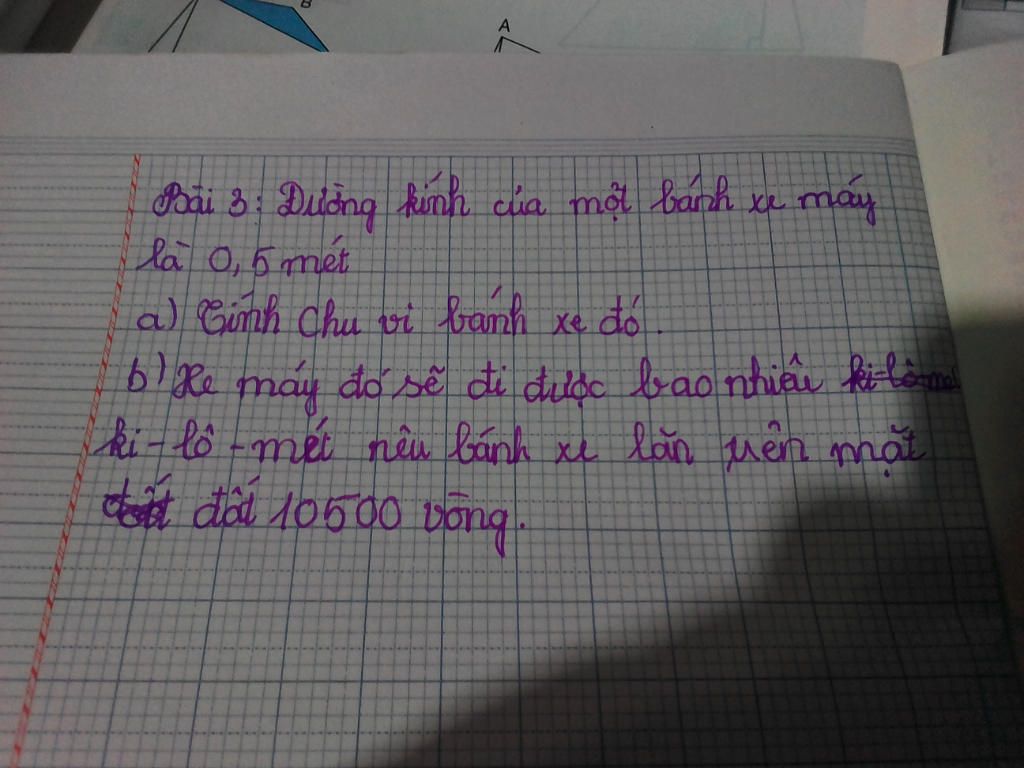 B
A
Bài 3: Đường kính của một bánh xe máy
là 0,5 mét
a) Tính chu vi bánh xe đó.
b) Xe máy đó sẽ đi được bao nhiêu ki-lô-mé
ki-lô-mét nếu bánh xe lăn trên mặt
đất 10500 vòng.